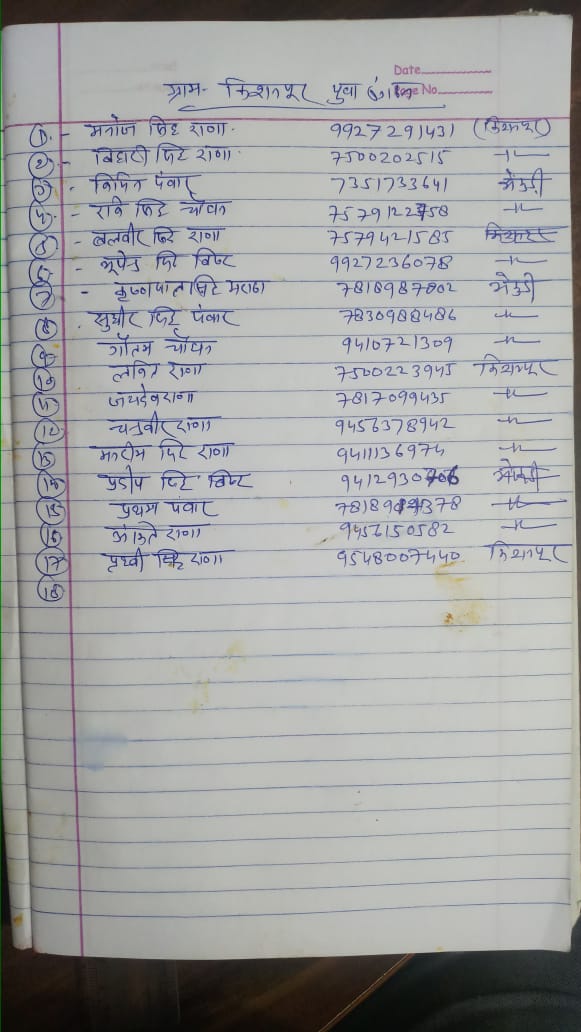 Date
ग्राम- किशनपुर युवा
Page No.
1. - मनोज सिंह राणा. 9927291431 (किशनपुर)
2. - बिहारी सिंह राणा. 7500202515 -"-
3. - विपिन पंवार 7351733641
4. - रवि सिंह चौहान 7579122758 -"-
5. - बलवीर सिंह राणा 7579421585 किशनपुर
6. - भूपेन्द्र सिंह बिष्ट 9927236078 -"-
7. - कृष्णपाल सिंह 7818987002
8. सुधीर सिंह पंवार 7830988486 -"-
9. गौतम चौहान 9410721309 -"-
10. ललित राणा 7500223945 किशनपुर
11. जयदेव राणा 7817099435 -"-
12. चन्द्रवीर राणा 9456378942 -"-
13. सिंह राणा 9411136974 -"-
14. प्रदीप सिंह बिष्ट
15. प्रथम पंवार -"-
16. अंकित राणा 9456150582 -"-
17. पृथ्वी सिंह राणा 9548007440 किशनपुर
18.